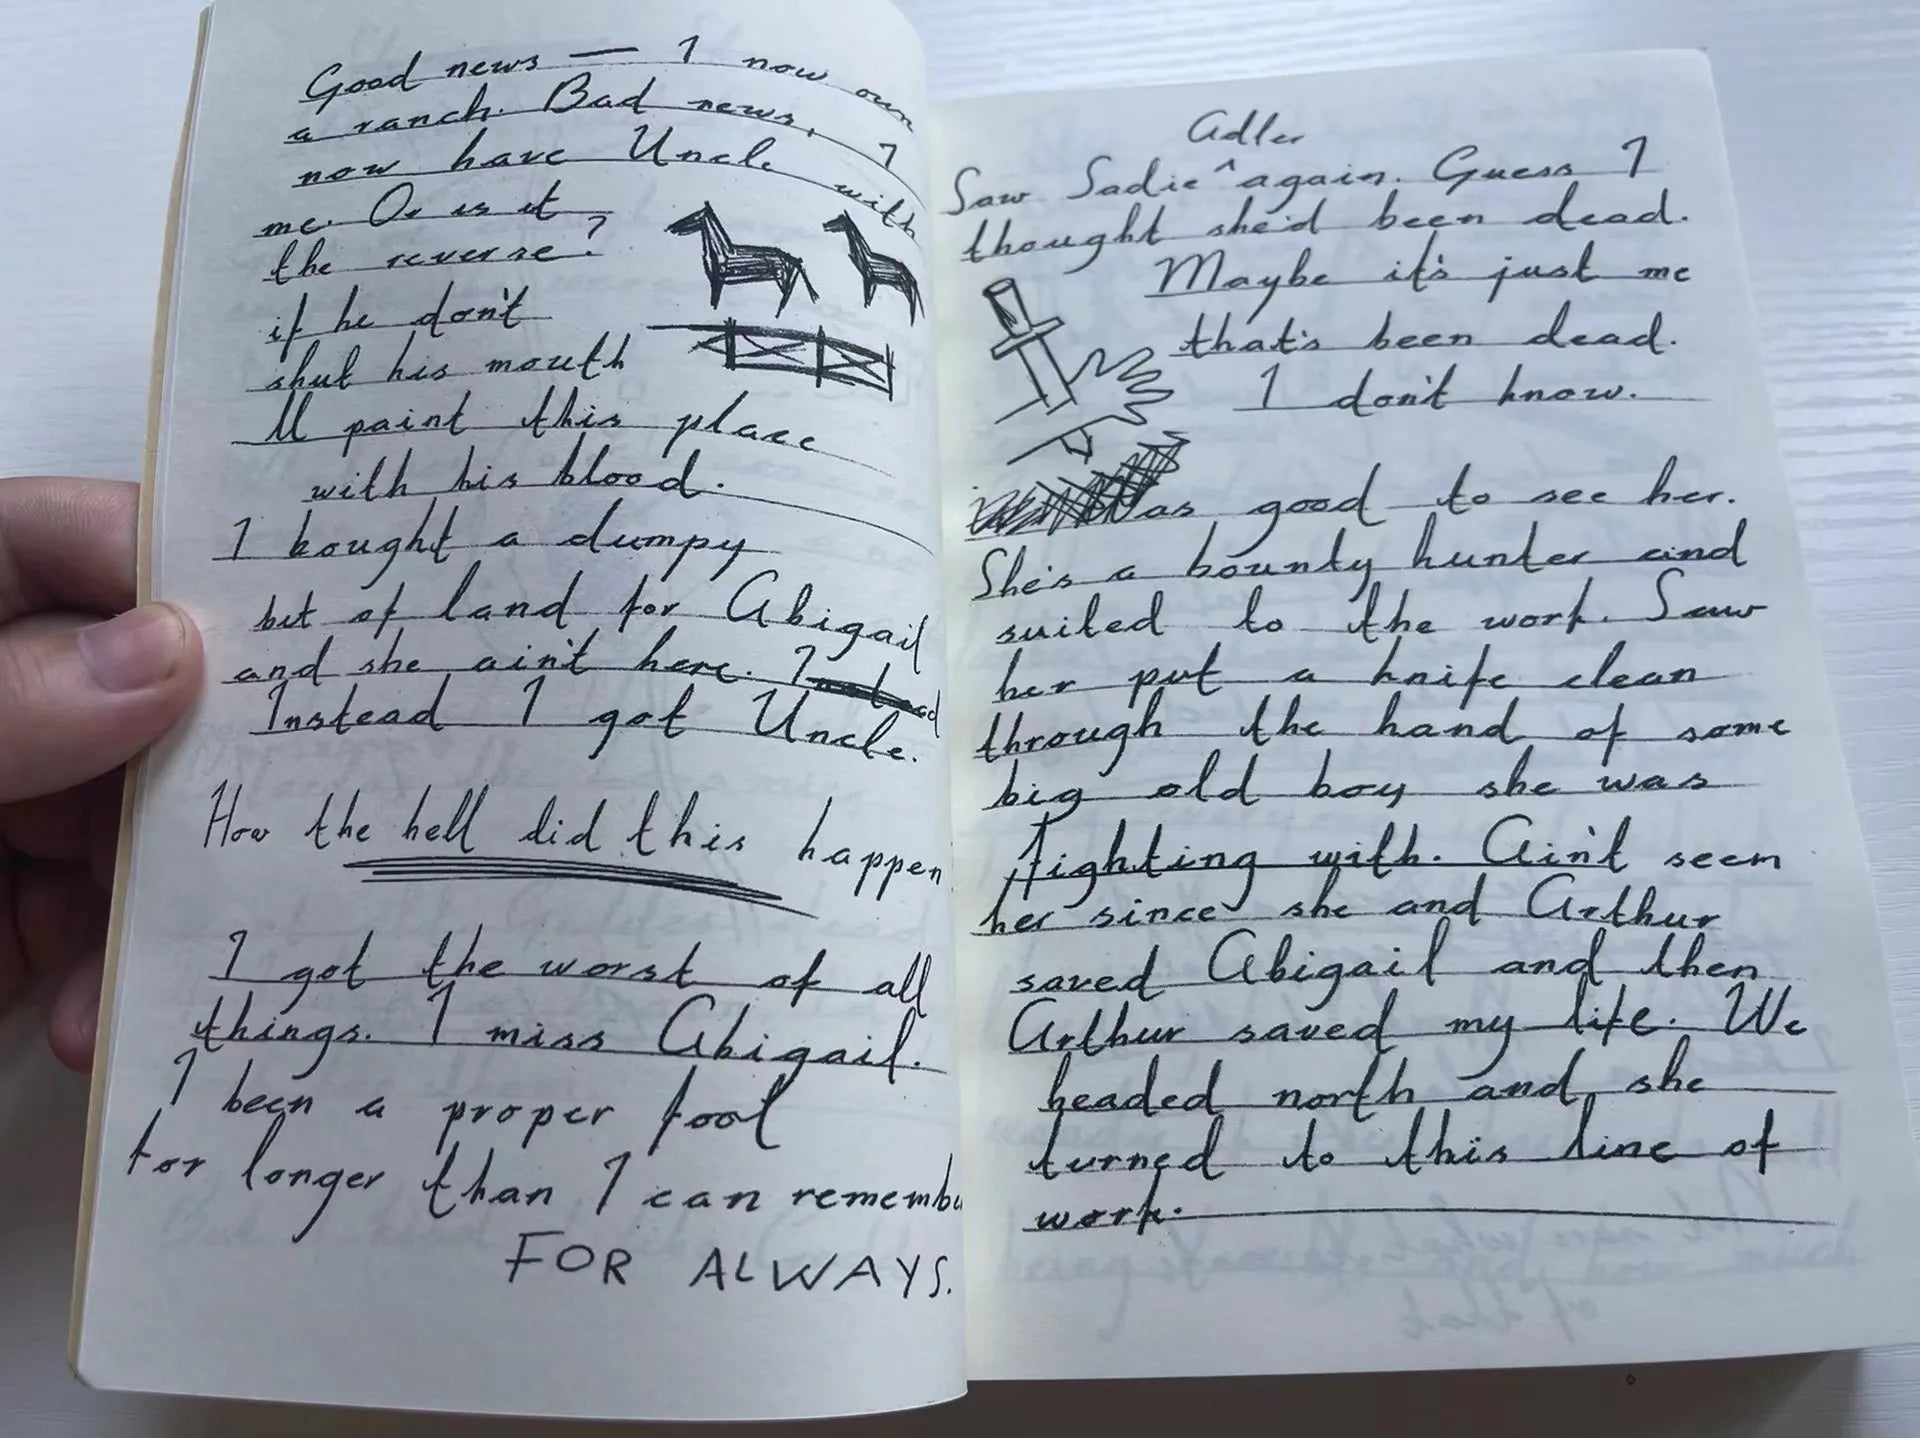 Good news — I now own
a ranch. Bad news, I
now have Uncle with
me. Or is it
the reverse?
if he don't
shut his mouth
I'll paint this place
with his blood.
I bought a dumpy
bit of land for Abigail
and she ain't here. Instead
Instead I got Uncle.
How the hell did this happen?
I got the worst of all
things. I miss Abigail.
I been a proper fool
for longer than I can remember
FOR ALWAYS.
Adler
Saw Sadie ^ again. Guess I
thought she'd been dead.
Maybe it's just me
that's been dead.
I don't know.
Was good to see her.
She's a bounty hunter and
suited to the work. Saw
her put a knife clean
through the hand of some
big old boy she was
fighting with. Ain't seen
her since she and Arthur
saved Abigail and then
Arthur saved my life. We
headed north and she
turned to this line of
work.